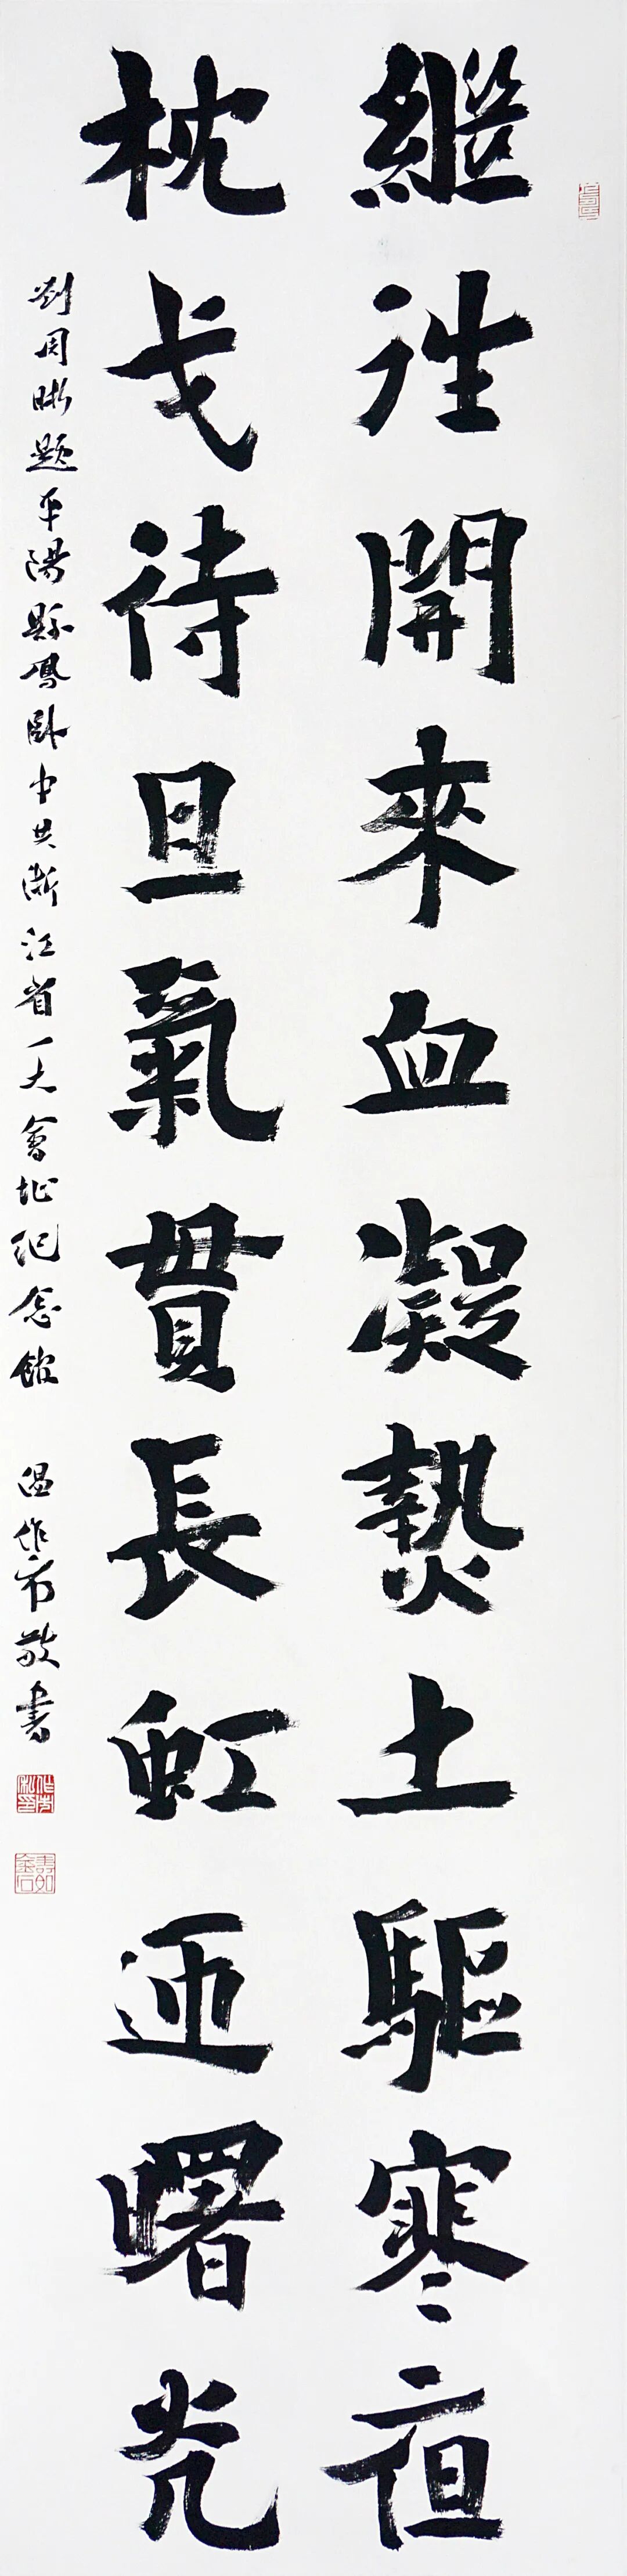 繼往開來血凝熱土驅寒夜
枕戈待旦氣貫長虹迎曙光
劉周晰題平陽縣鳳卧中共浙江省一大會址紀念館 溫作市敬書
壽如金石